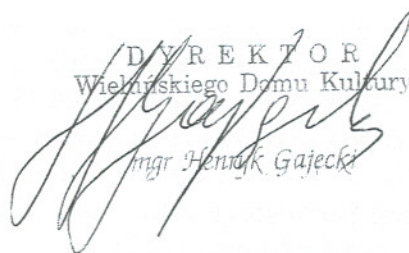 DYREKTOR
Wieluńskiego Domu Kultury
mgr Henryk Gajęcki